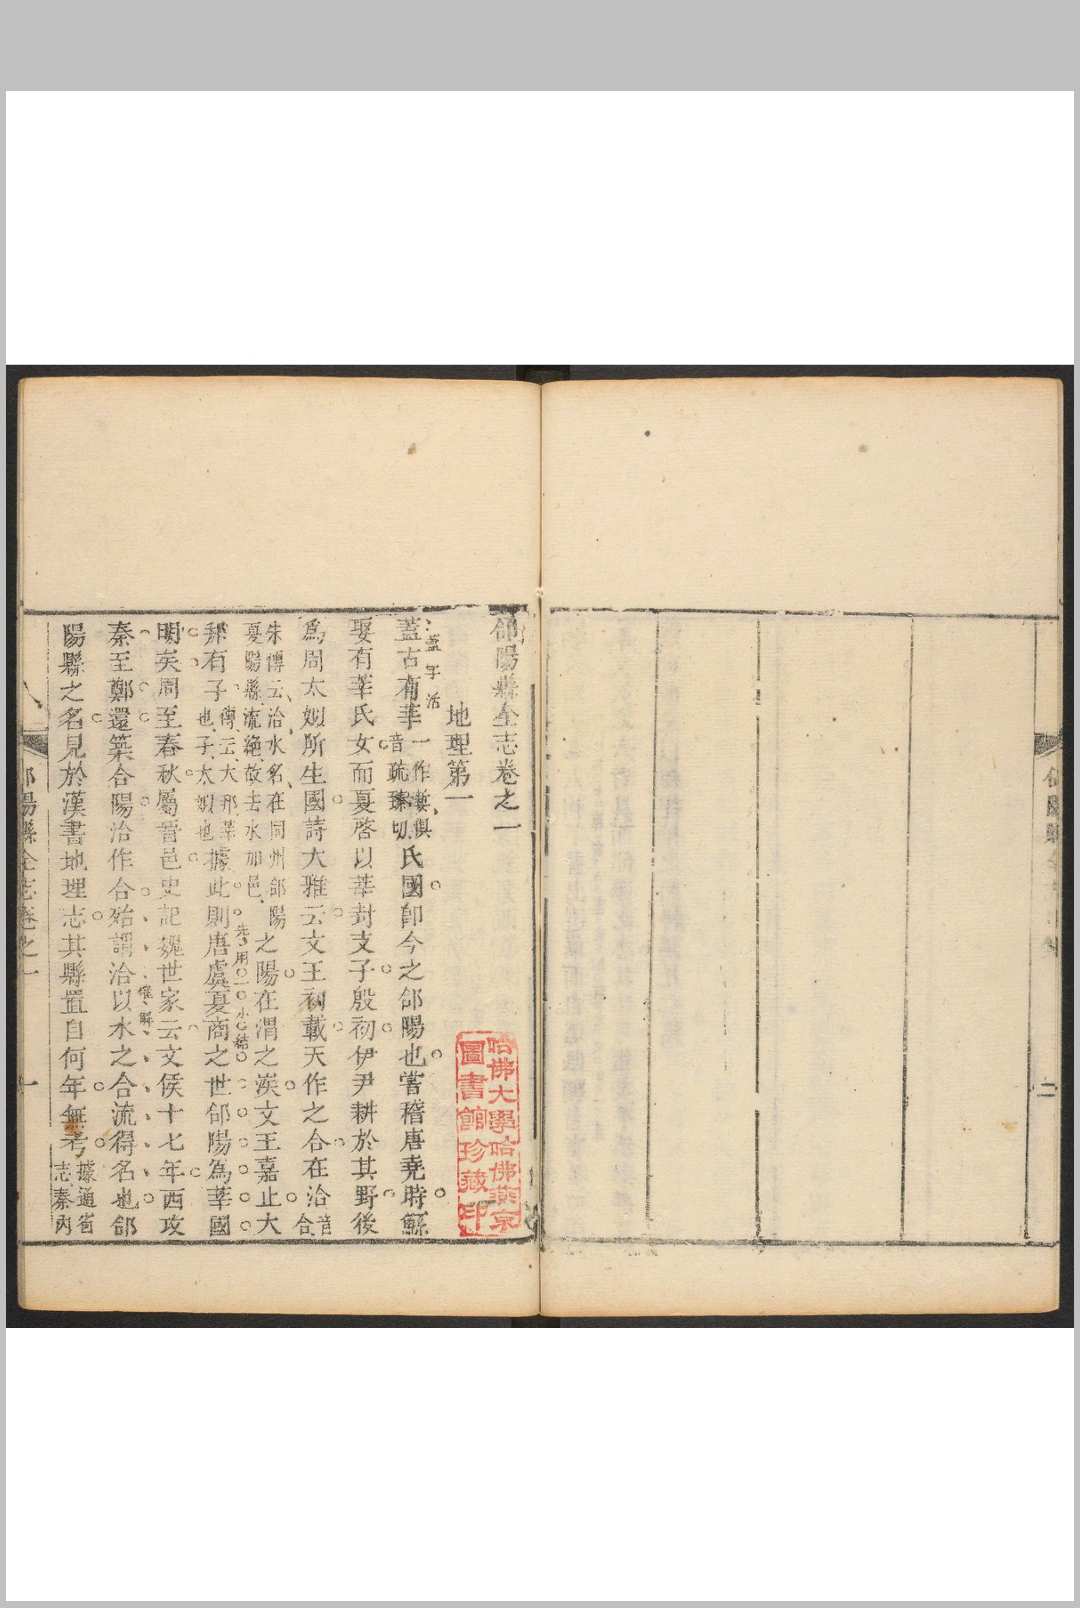 郃陽縣全志卷之一
地理第一
蓋古有莘一作㜪俱音疏臻切氏國卽今之郃陽也嘗稽唐堯時鯀
蓋字活
娶有莘氏女而夏啓以莘封支子殷初伊尹耕於其野後
爲周太姒所生國詩大雅云文王初載天作之合在洽音合
朱傳云洽水名在同州郃陽夏陽縣流絶故去水加邑之陽在渭之涘文王嘉止大
邦有子傳云大邦莘也子太姒也據此則唐虞夏商之世郃陽爲莘國
先用一小結
明矣周至春秋屬晉邑史記魏世家云文侯十七年西攻
秦至鄭還築合陽洽作合殆謂洽以水之合流得名也郃
確解
陽縣之名見於漢書地理志其縣置自何年無考據通志秦內
郃陽縣全志卷之一
一
二
哈佛大學哈佛燕京
圖書館珍藏印